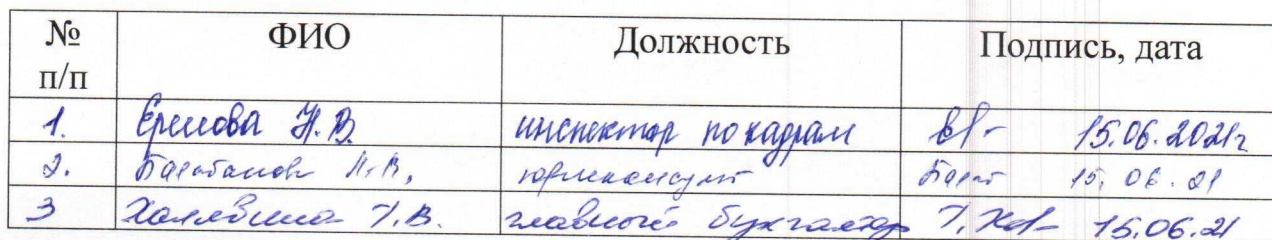 № п/п ФИО Должность Подпись, дата
1. Еремова Н.В. инспектор по кадрам 15.06.2021г
2. юрисконсульт 15.06.21
3 Халявина Т.В. главный бухгалтер 15.06.21